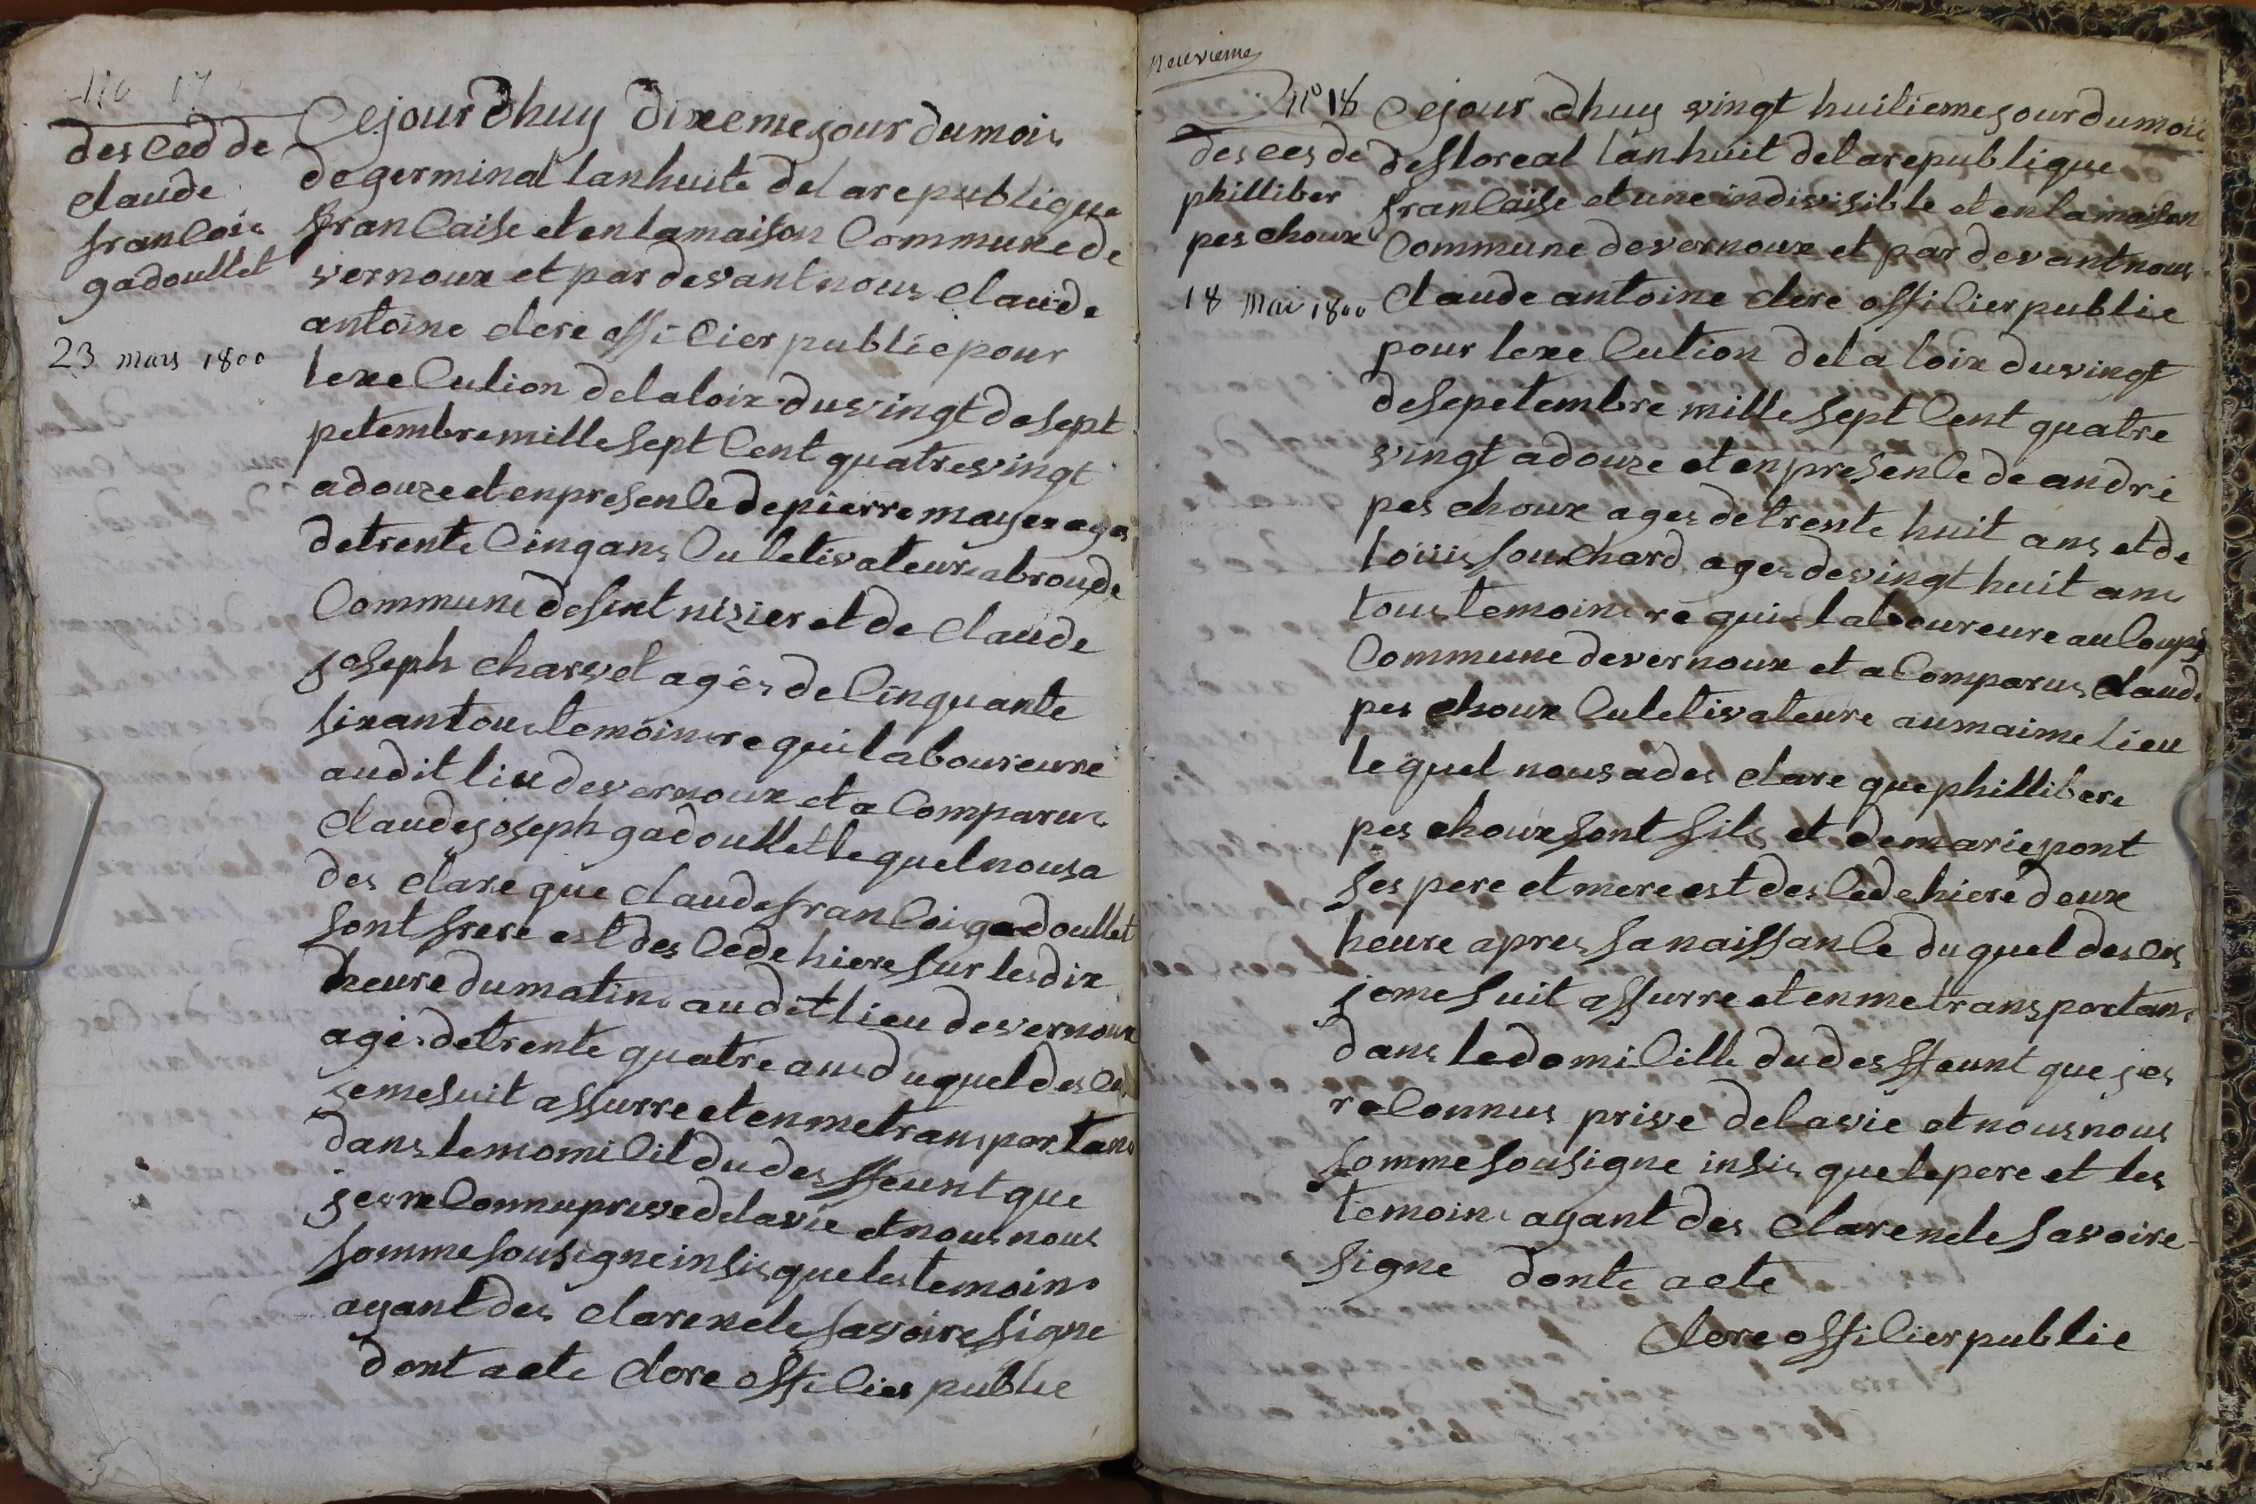 no 17
des Ced de
Claude
francois
gadoullet
23 mars 1800
Cejourdhuy dixeme jour dumois
de germinal lanhuite delarepublique
francaise et en lamaison Commune de
vernoux et par devant nous Claude
antoine clere officier public pour
lexecution delaloix du vingt de sept
petembre mille sept Cent quatre vingt
adouze et en presence de pierre mayer ages
de trente Cinq ans Culetivateure abroude
Commune de sint nizier et de Claude
joseph charvet agés de Cinquante
six an tous temoins requi laboureure
audit lieu de vernoux et a Comparus
Claude joseph gadoullet lequel nousa
des clare que Claude francois gadoullet
sont frere est des Cede hiere sur les dix
heure dumatin audit lieu de vernoux
agés de trente quatre ans duquel des Ces
je me suit assurre et en me transportans
dans le momicil du des ffeunt que
jes reConnu prive delavie et nous nous
somme sousigne insis que les temoins
ayant des clare nele savoire signe
dont acte clere officier public
neuvieme
n° 18
des ces de
philliber
pes choux
18 mai 1800
Cejour dhuy vingt huitieme jour dumois
de floreal lan huit delarepublique
francaise et une indivisible et en lamaison
Commune de vernoux et par devant nous
Claude antoine clere officier public
pour lexecution dela loix du vingt
de sepetembre mille sept Cent quatre
vingt adouze et en presence de andre
pes choux ages de trente huit ans et de
loüis souchard ages de vingt huit ans
tous temoins requis laboureure au Coupy
Commune de vernoux et a Comparus Claude
pes choux Culetivateure au maime lieu
lequel nous a des clare que phillibere
pes choux sont fils et de marie pont
ses pere et mere est des Cede hiere deux
heure apres sa naissance duquel des Ces
je me suit assurre et en me transportans
dans le domicille du des ffeunt que jes
reConnus prive delavie et nous nous
somme sousigne insis que le pere et les
temoins ayant des clare nele savoire
signe donte acte
Clere officier public